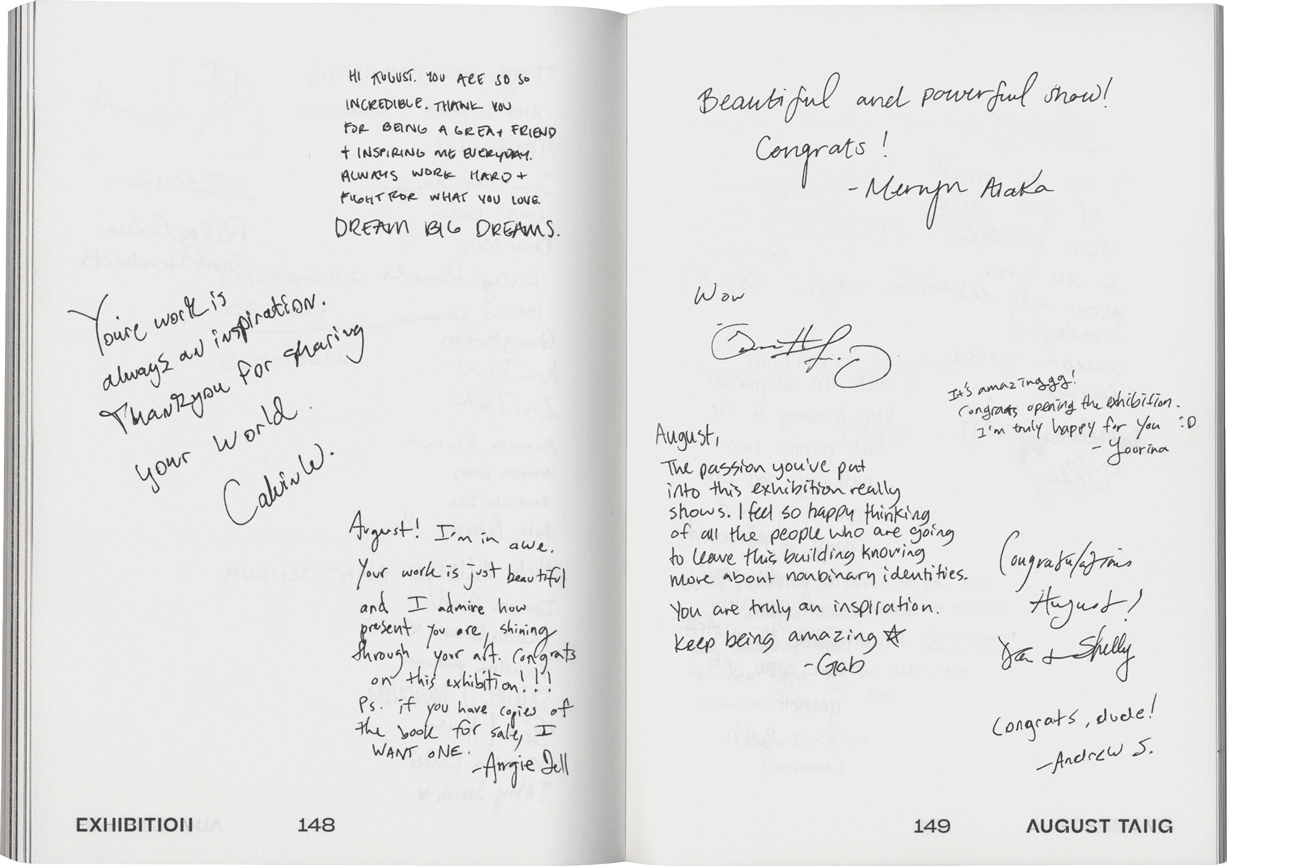 HI AUGUST. YOU ARE SO SO
INCREDIBLE. THANK YOU
FOR BEING A GREAT FRIEND
+ INSPIRING ME EVERYDAY.
ALWAYS WORK HARD +
FIGHT FOR WHAT YOU LOVE.
DREAM BIG DREAMS.
You're work is
always an inspiration.
Thankyou for sharing
your world.
Calvin W.
August! I'm in awe.
Your work is just beautiful
and I admire how
present you are, shining
through your art. Congrats
on this exhibition!!!
Ps. if you have copies of
the book for sale, I
WANT ONE.
-Angie
EXHIBITION 148
Beautiful and powerful show!
Congrats!
-Mervyn
Wow
It's amazinggg!
Congrats opening the exhibition.
I'm truly happy for you :D
- Yoorina
August,
The passion you've put
into this exhibition really
shows. I feel so happy thinking
of all the people who are going
to leave this building knowing
more about nonbinary identities.
You are truly an inspiration.
Keep being amazing ☆
-Gab
Congratulations
August!
+ Shelly
Congrats, dude!
-Andrew S.
149 AUGUST TANG